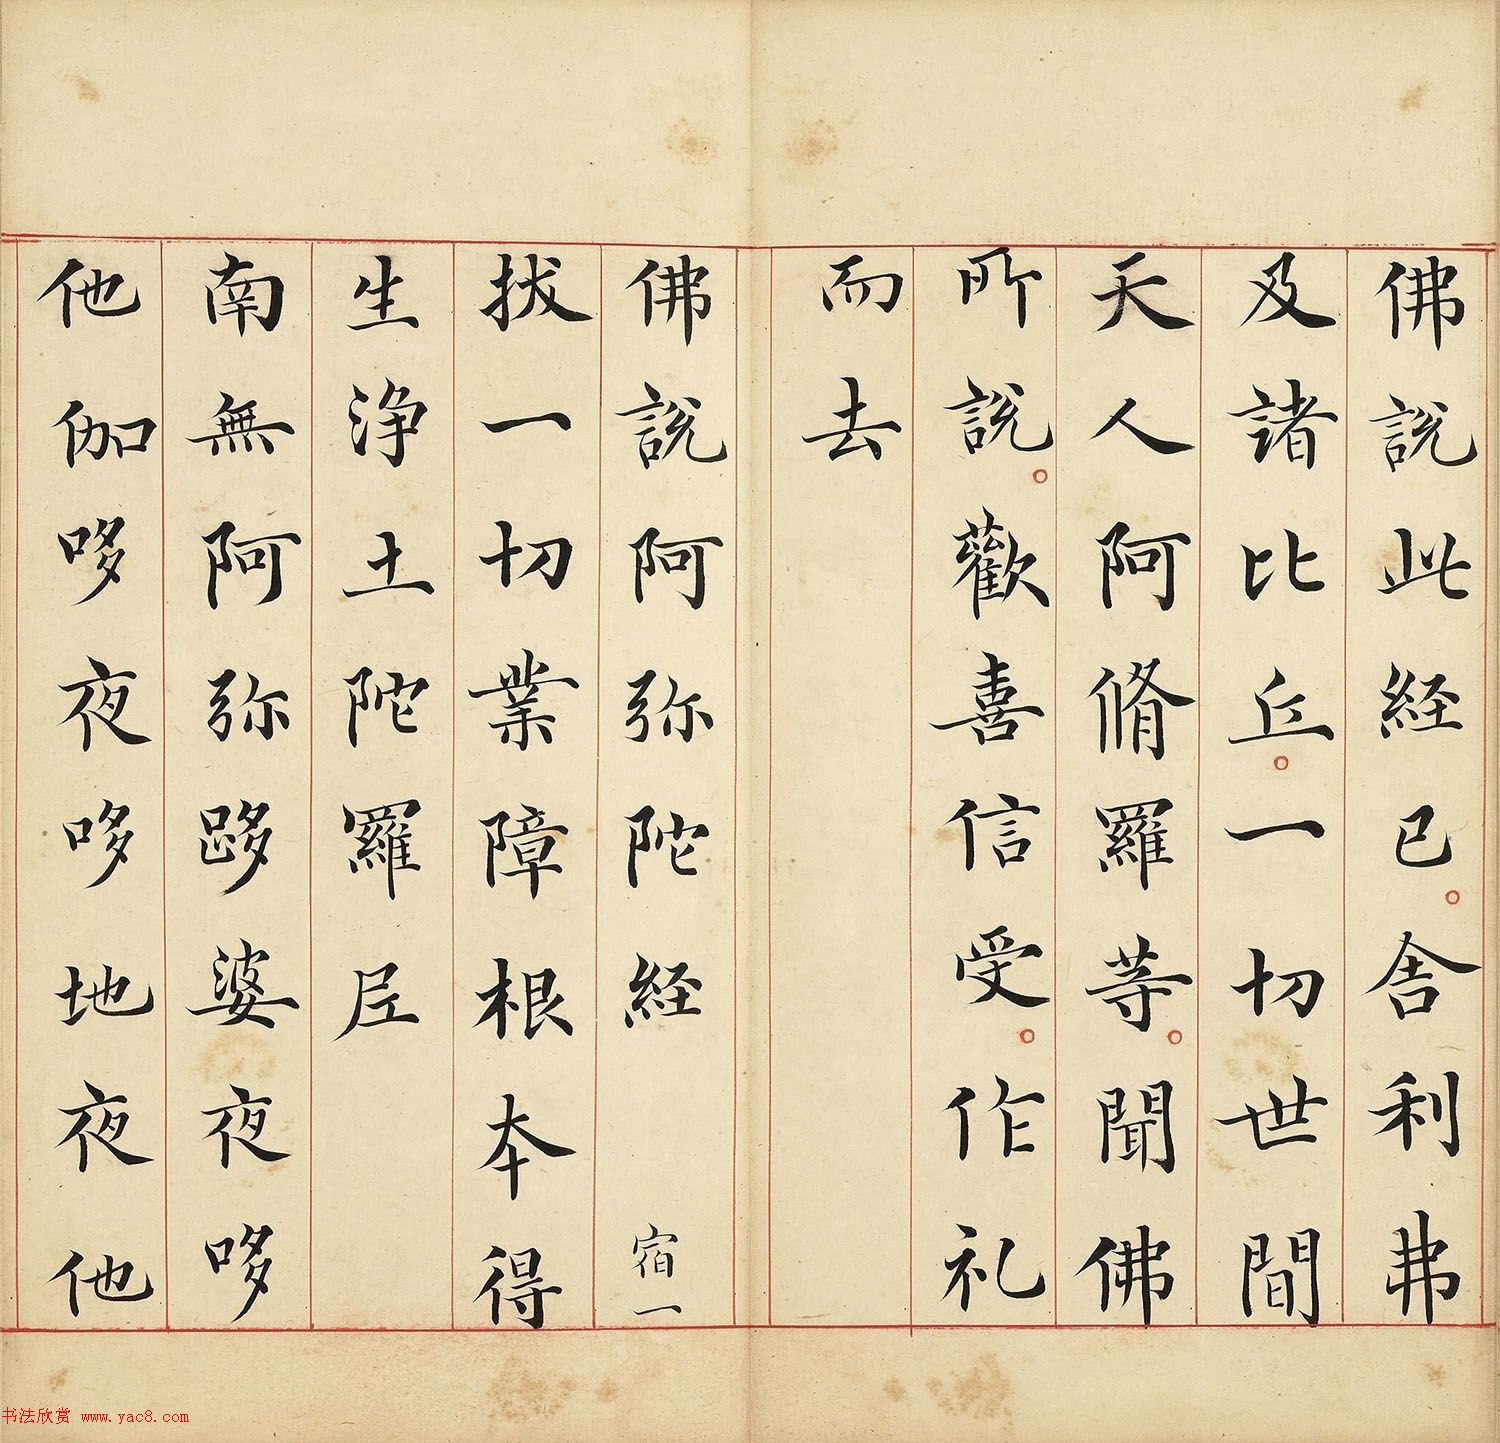 佛說此経已。舎利弗
及諸比丘。一切世間
天人阿脩羅等。聞佛
所說。歡喜信受。作礼
而去
佛說阿弥陀経 宿一
拔一切業障根本得
生淨土陀羅尼
南無阿弥哆婆夜哆
他伽哆夜哆地夜他
书法欣赏 www.yac8.com